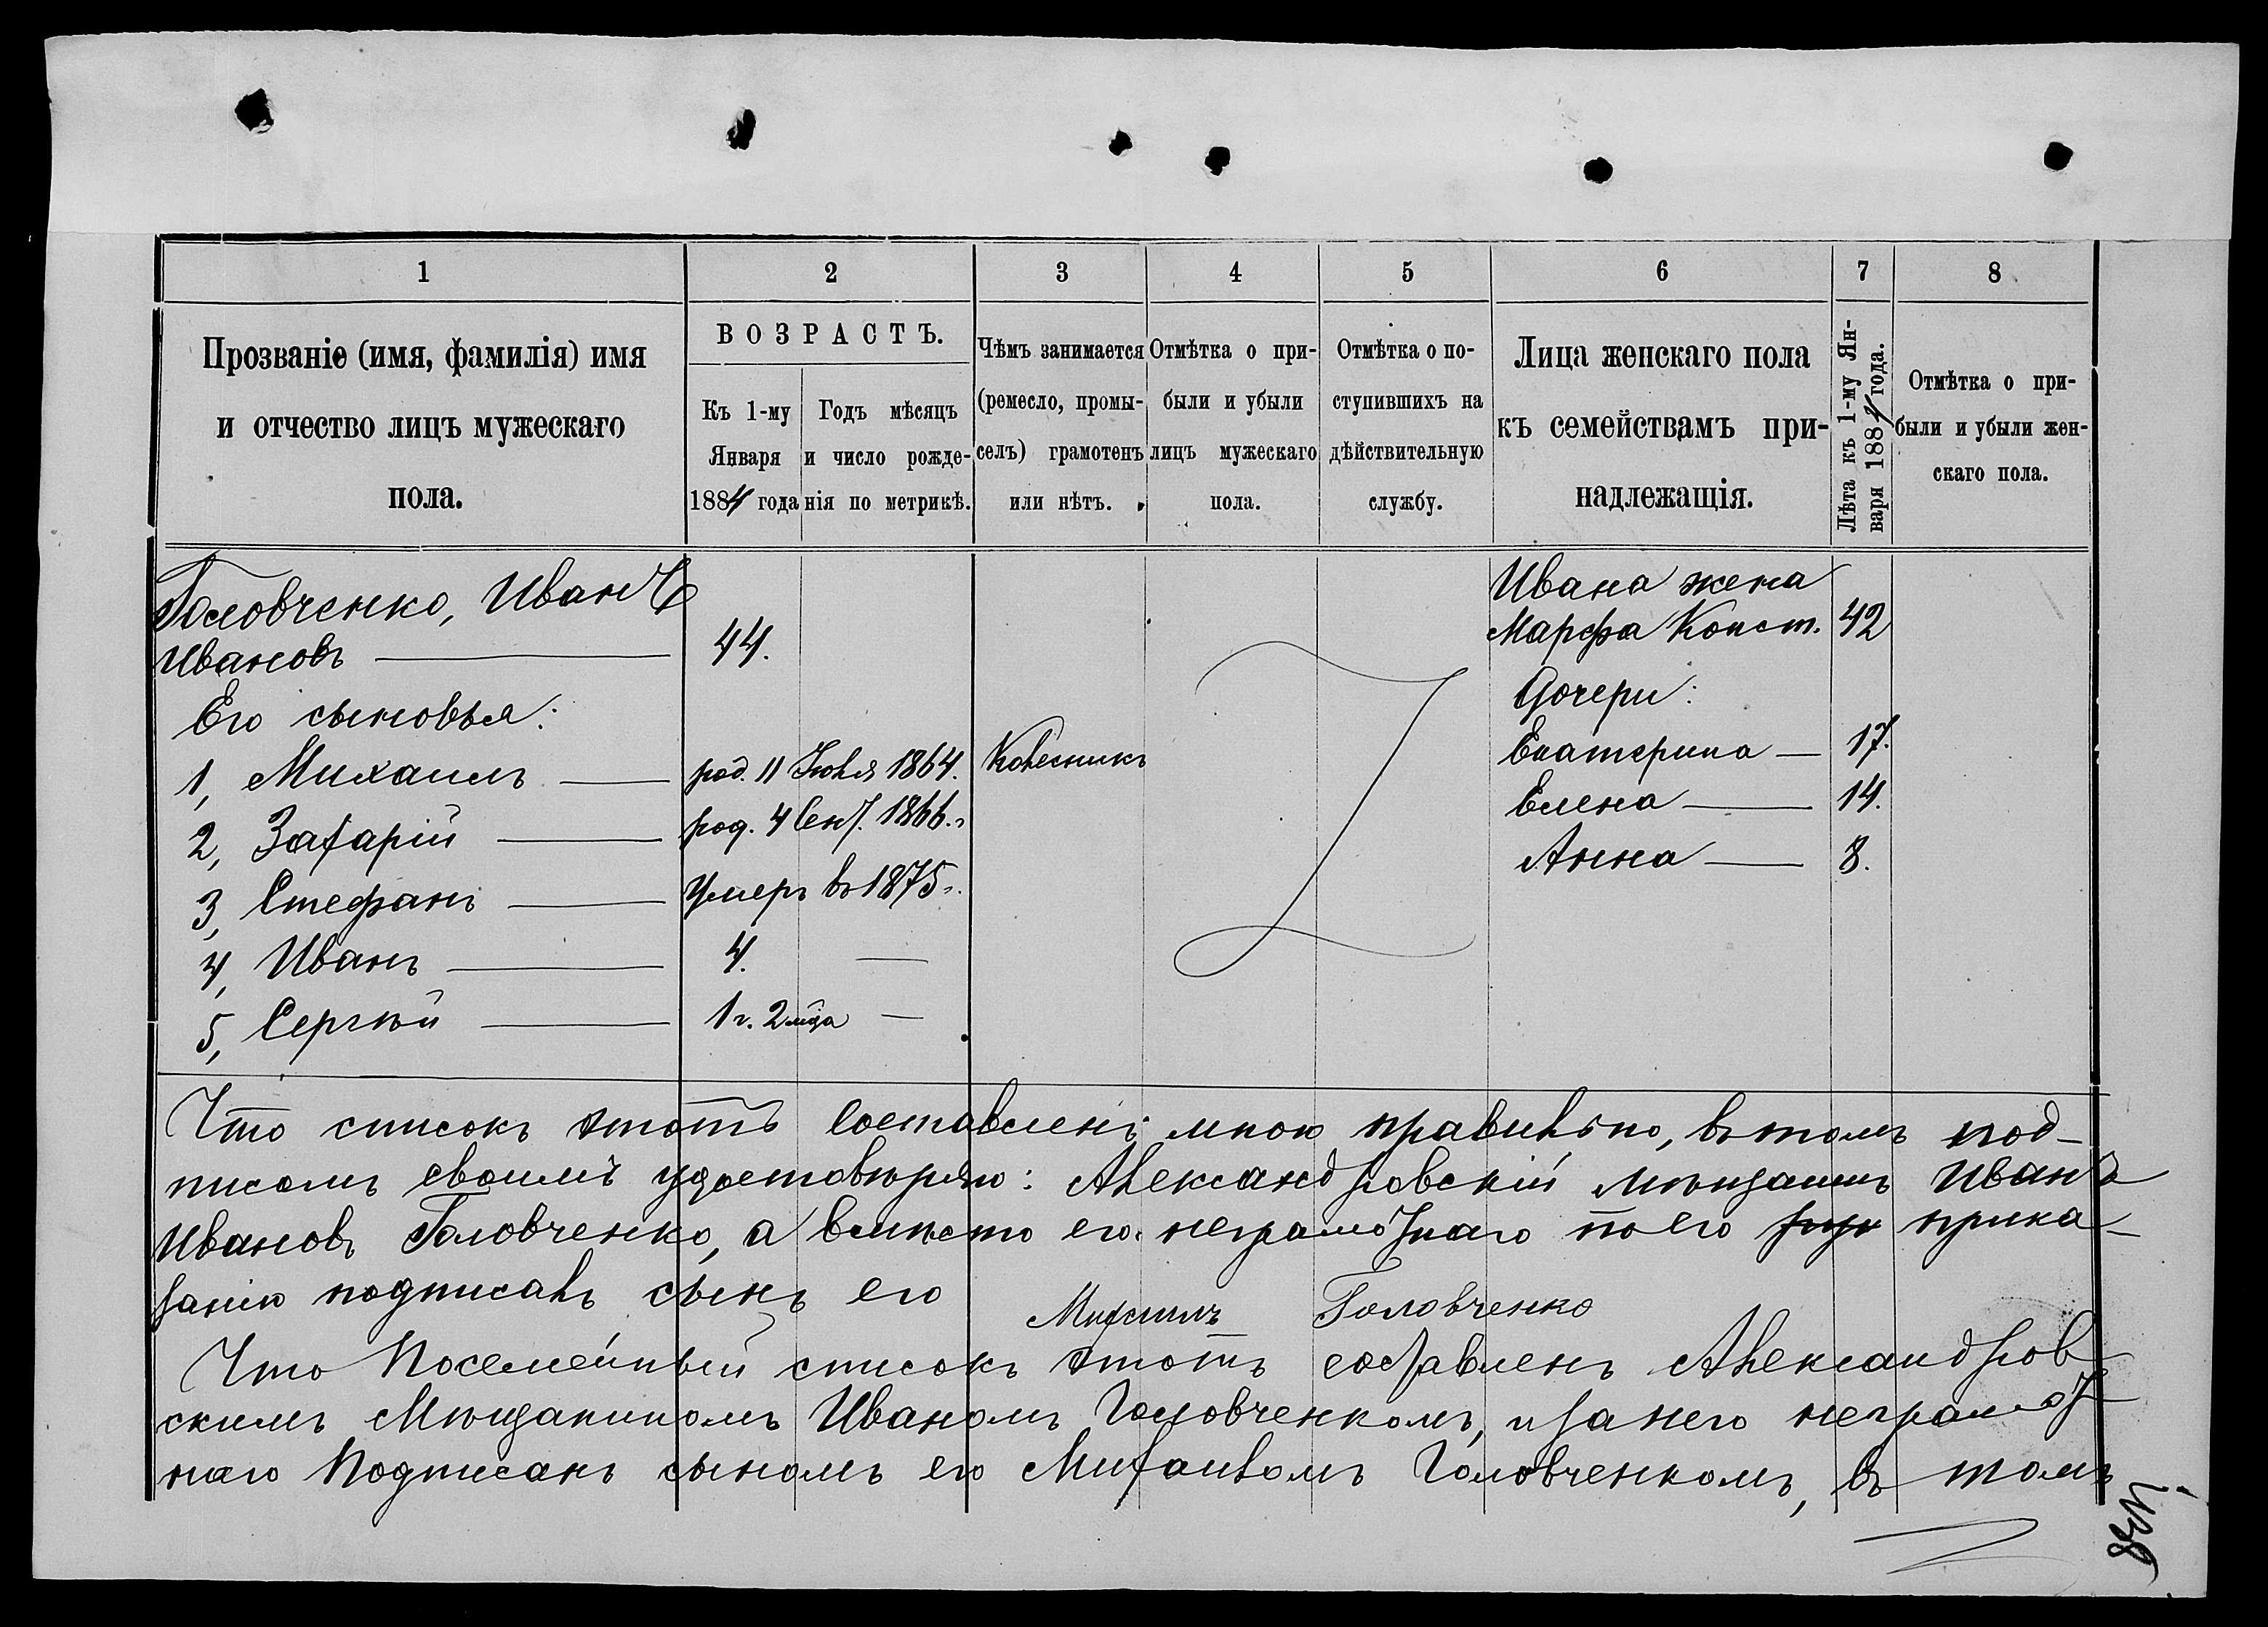 1 2 3 4 5 6 7 8
Прозваніе (имя, фамилія) имя
и отчество лицъ мужескаго
пола.
ВОЗРАСТЪ.
Къ 1-му
Января
1884 года
Годъ мѣсяцъ
и число рожде-
нія по метрикѣ.
Чѣмъ занимается
(ремесло, промы-
селъ) грамотенъ
или нѣтъ.
Отмѣтка о при-
были и убыли
лицъ мужескаго
пола.
Отмѣтка о по-
ступившихъ на
дѣйствительную
службу.
Лица женскаго пола
къ семействамъ при-
надлежащія.
Лѣта къ 1-му Ян-
варя 1884 года.
Отмѣтка о при-
были и убыли жен-
скаго пола.
Головченко, Иванъ
Ивановъ — 44.
Его сыновья:
1, Михаилъ — род. 11 Іюля 1864. Колесникъ
2, Захарій — род. 4 Сент. 1866 г.
3, Стефанъ — умеръ въ 1875 г.
4, Иванъ — 4. —
5, Сергѣй — 1 г. 2 мѣца —
Ивана жена
Марфа Конст. 42
Дочери:
Екатерина — 17.
Елена — 14.
Анна — 8.
Что списокъ этотъ составленъ мною правильно, въ томъ под-
писомъ своимъ удостовѣряю: Александровскій мѣщанинъ Иванъ
Ивановъ Головченко, а вмѣсто его неграмотнаго по его прика-
занію подписалъ сынъ его Михаилъ Головченко
Что Посемейный списокъ этотъ составленъ Александров
скимъ Мѣщаниномъ Иваномъ Головченкомъ, и за него неграмот
наго Подписанъ сыномъ его Михаиломъ Головченкомъ, въ томъ